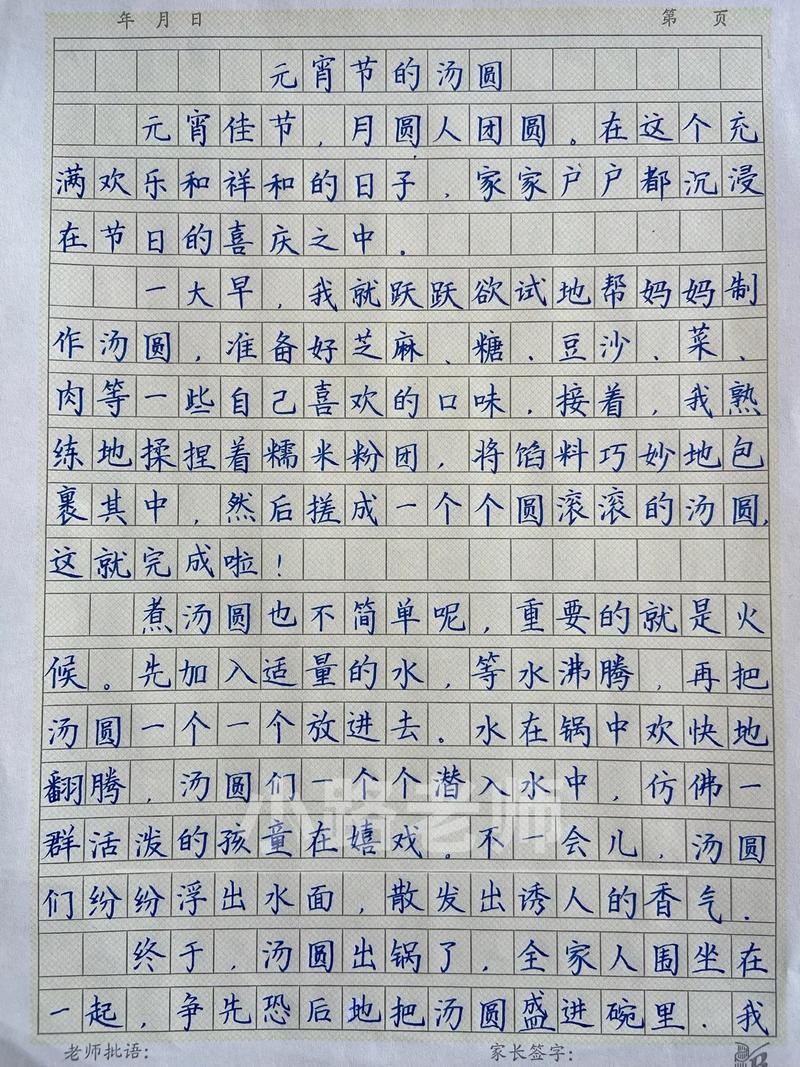 年 月 日 第 页
元宵节的汤圆
元宵佳节，月圆人团圆。在这个充
满欢乐和祥和的日子，家家户户都沉浸
在节日的喜庆之中。
一大早，我就跃跃欲试地帮妈妈制
作汤圆，准备好芝麻、糖、豆沙、菜、
肉等一些自己喜欢的口味，接着，我熟
练地揉捏着糯米粉团，将馅料巧妙地包
裹其中，然后搓成一个个圆滚滚的汤圆，
这就完成啦！
煮汤圆也不简单呢，重要的就是火
候。先加入适量的水，等水沸腾，再把
汤圆一个一个放进去。水在锅中欢快地
翻腾，汤圆们一个个潜入水中，仿佛一
群活泼的孩童在嬉戏。不一会儿，汤圆
们纷纷浮出水面，散发出诱人的香气．
终于，汤圆出锅了，全家人围坐在
一起，争先恐后地把汤圆盛进碗里．我
老师批语： 家长签字：
小路老师